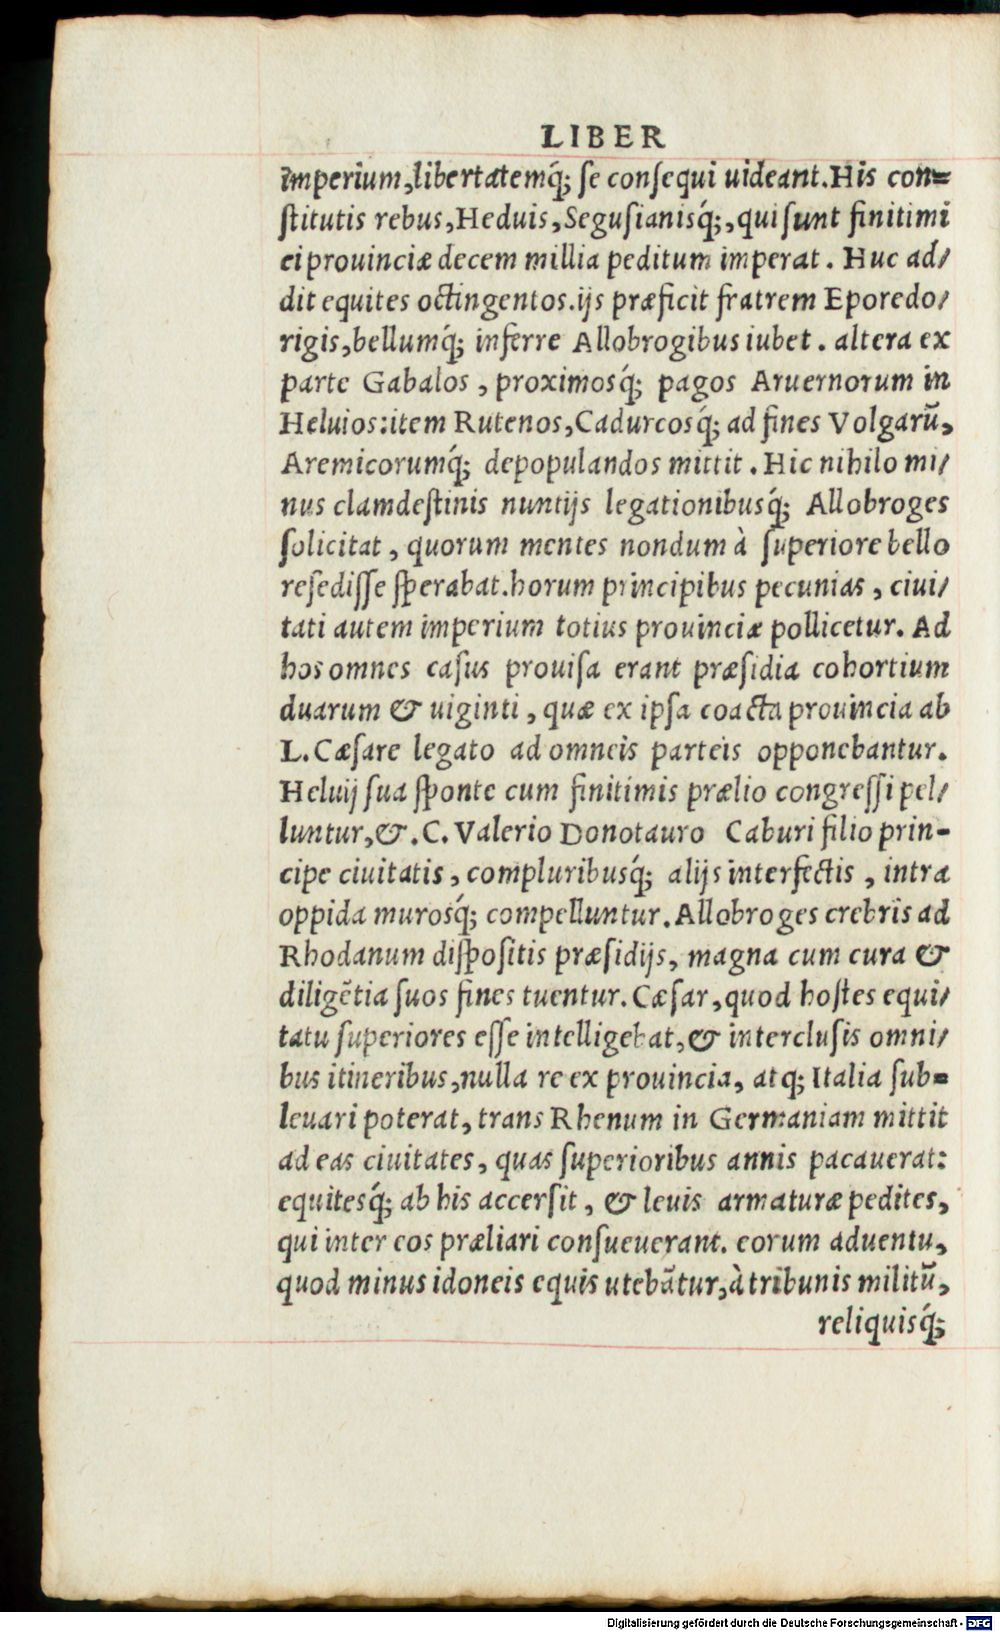 LIBER
imperium,libertatemq́; ſe conſequi uideant.His con=
ſtitutis rebus,Heduis,Seguſianisq́;,qui ſunt finitimi
ei prouinciæ decem millia peditum imperat. Huc ad/
dit equites octingentos.ijs præficit fratrem Eporedo/
rigis,bellumq́; inferre Allobrogibus iubet. altera ex
parte Gabalos, proximosq́; pagos Aruernorum in
Heluios:item Rutenos,Cadurcosq́; ad fines Volgarũ,
Aremicorumq́; depopulandos mittit. Hic nihilo mi/
nus clamdeſtinis nuntijs legationibusq́; Allobroges
ſolicitat, quorum mentes nondum à ſuperiore bello
reſediſſe ſperabat.horum principibus pecunias, ciui/
tati autem imperium totius prouinciæ pollicetur. Ad
hos omnes caſus prouiſa erant præſidia cohortium
duarum & uiginti, quæ ex ipſa coacta prouincia ab
L.Cæſare legato ad omneis parteis opponebantur.
Heluij ſua ſponte cum finitimis prælio congreſſi pel/
luntur,&.C.Valerio Donotauro Caburi filio prin-
cipe ciuitatis, compluribusq́; alijs interfectis, intra
oppida murosq́; compelluntur.Allobroges crebris ad
Rhodanum diſpoſitis præſidijs, magna cum cura &
diligẽtia ſuos fines tuentur.Cæſar,quod hoſtes equi/
tatu ſuperiores eſſe intelligebat,& interclusis omni/
bus itineribus,nulla re ex prouincia, atq; Italia ſub=
leuari poterat, trans Rhenum in Germaniam mittit
ad eas ciuitates, quas ſuperioribus annis pacauerat:
equitesq́; ab his accerſit, & leuis armaturæ pedites,
qui inter eos præliari conſueuerant. eorum aduentu,
quod minus idoneis equis utebãtur,à tribunis militũ,
reliquisq́;
Digitalisierung gefördert durch die Deutsche Forschungsgemeinschaft - DFG